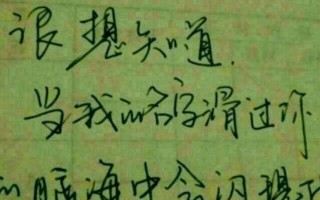 很想知道.
当我的名字滑过你
的脑海中会闪现